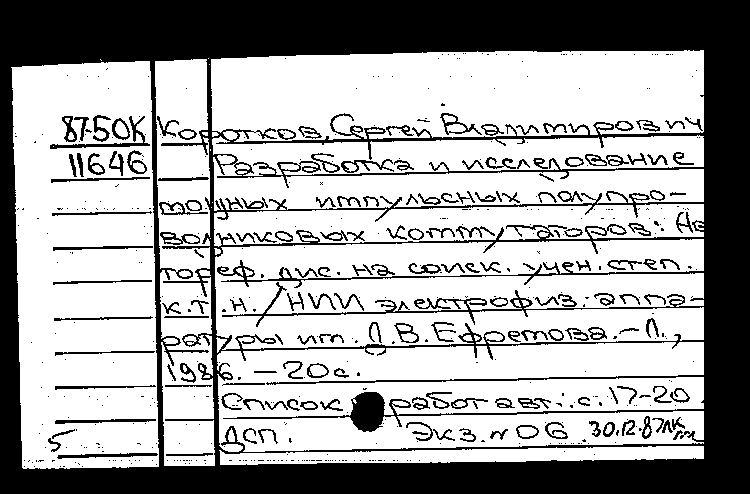 87-50К Коротков, Сергей Владимирович
11646 Разработка и исследование
мощных импульсных полупро-
водниковых коммутаторов: Ав
тореф. дис. на соиск. учен. степ.
к.т.н. / НИИ электрофиз. аппа-
ратуры им. Д.В. Ефремова. – Л.,
1986. – 20 с.
Список работ авт.: с. 17-20
5 ДСП. Экз. № 06 30.12.87